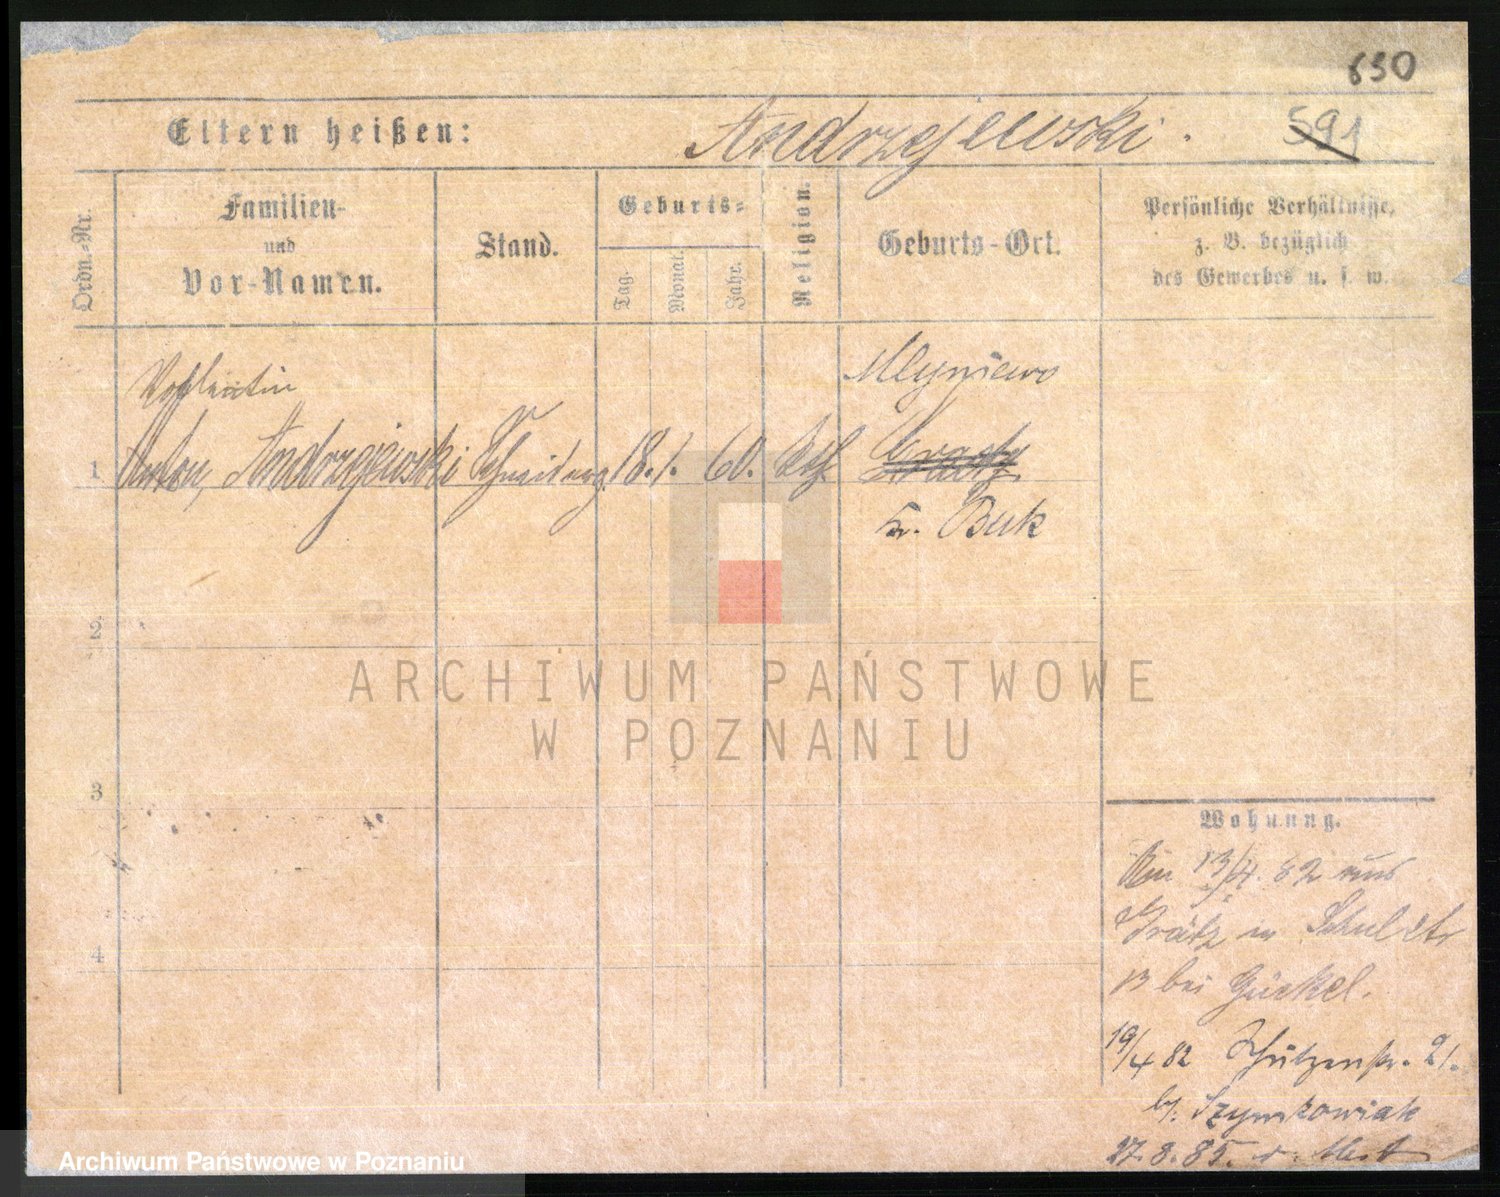 650
Eltern heißen:
Andrzejewski.
591
Ordn.-Nr.
Familien-
und
Vor-Namen.
Stand.
Geburts-
Tag.
Monat.
Jahr.
Religion.
Geburts-Ort.
Persönliche Verhältnisse,
z. B. bezüglich
des Gewerbes u. s. w.
1
Anton, Andrzejewski
18. 1. 60. Kth.
Mlyniewo
Graetz
Kr. Buk
2
3
4
ARCHIWUM PAŃSTWOWE
W POZNANIU
Wohnung.
13/4. 82 aus
Grätz in Schulstr
13 bei
19/4 82 Schützenstr. 21.
b/. Szymkowiak
27.8.85.
Archiwum Państwowe w Poznaniu